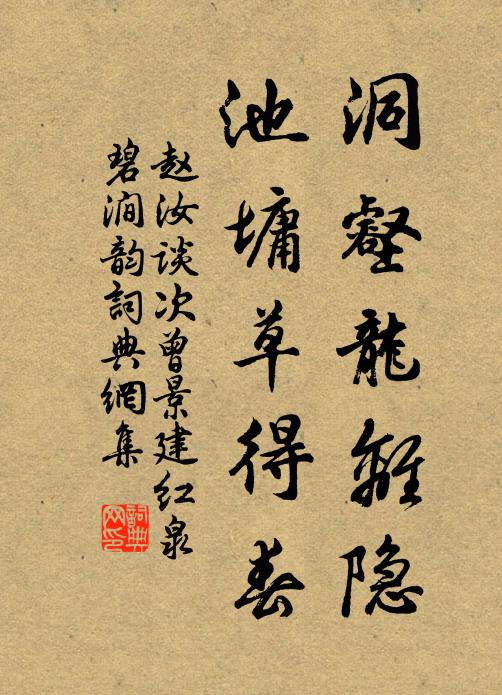 洞壑龍離隐
池墉草得春
赵汝谈次曾景建红泉
碧涧韵詞典網集
詞典
网印